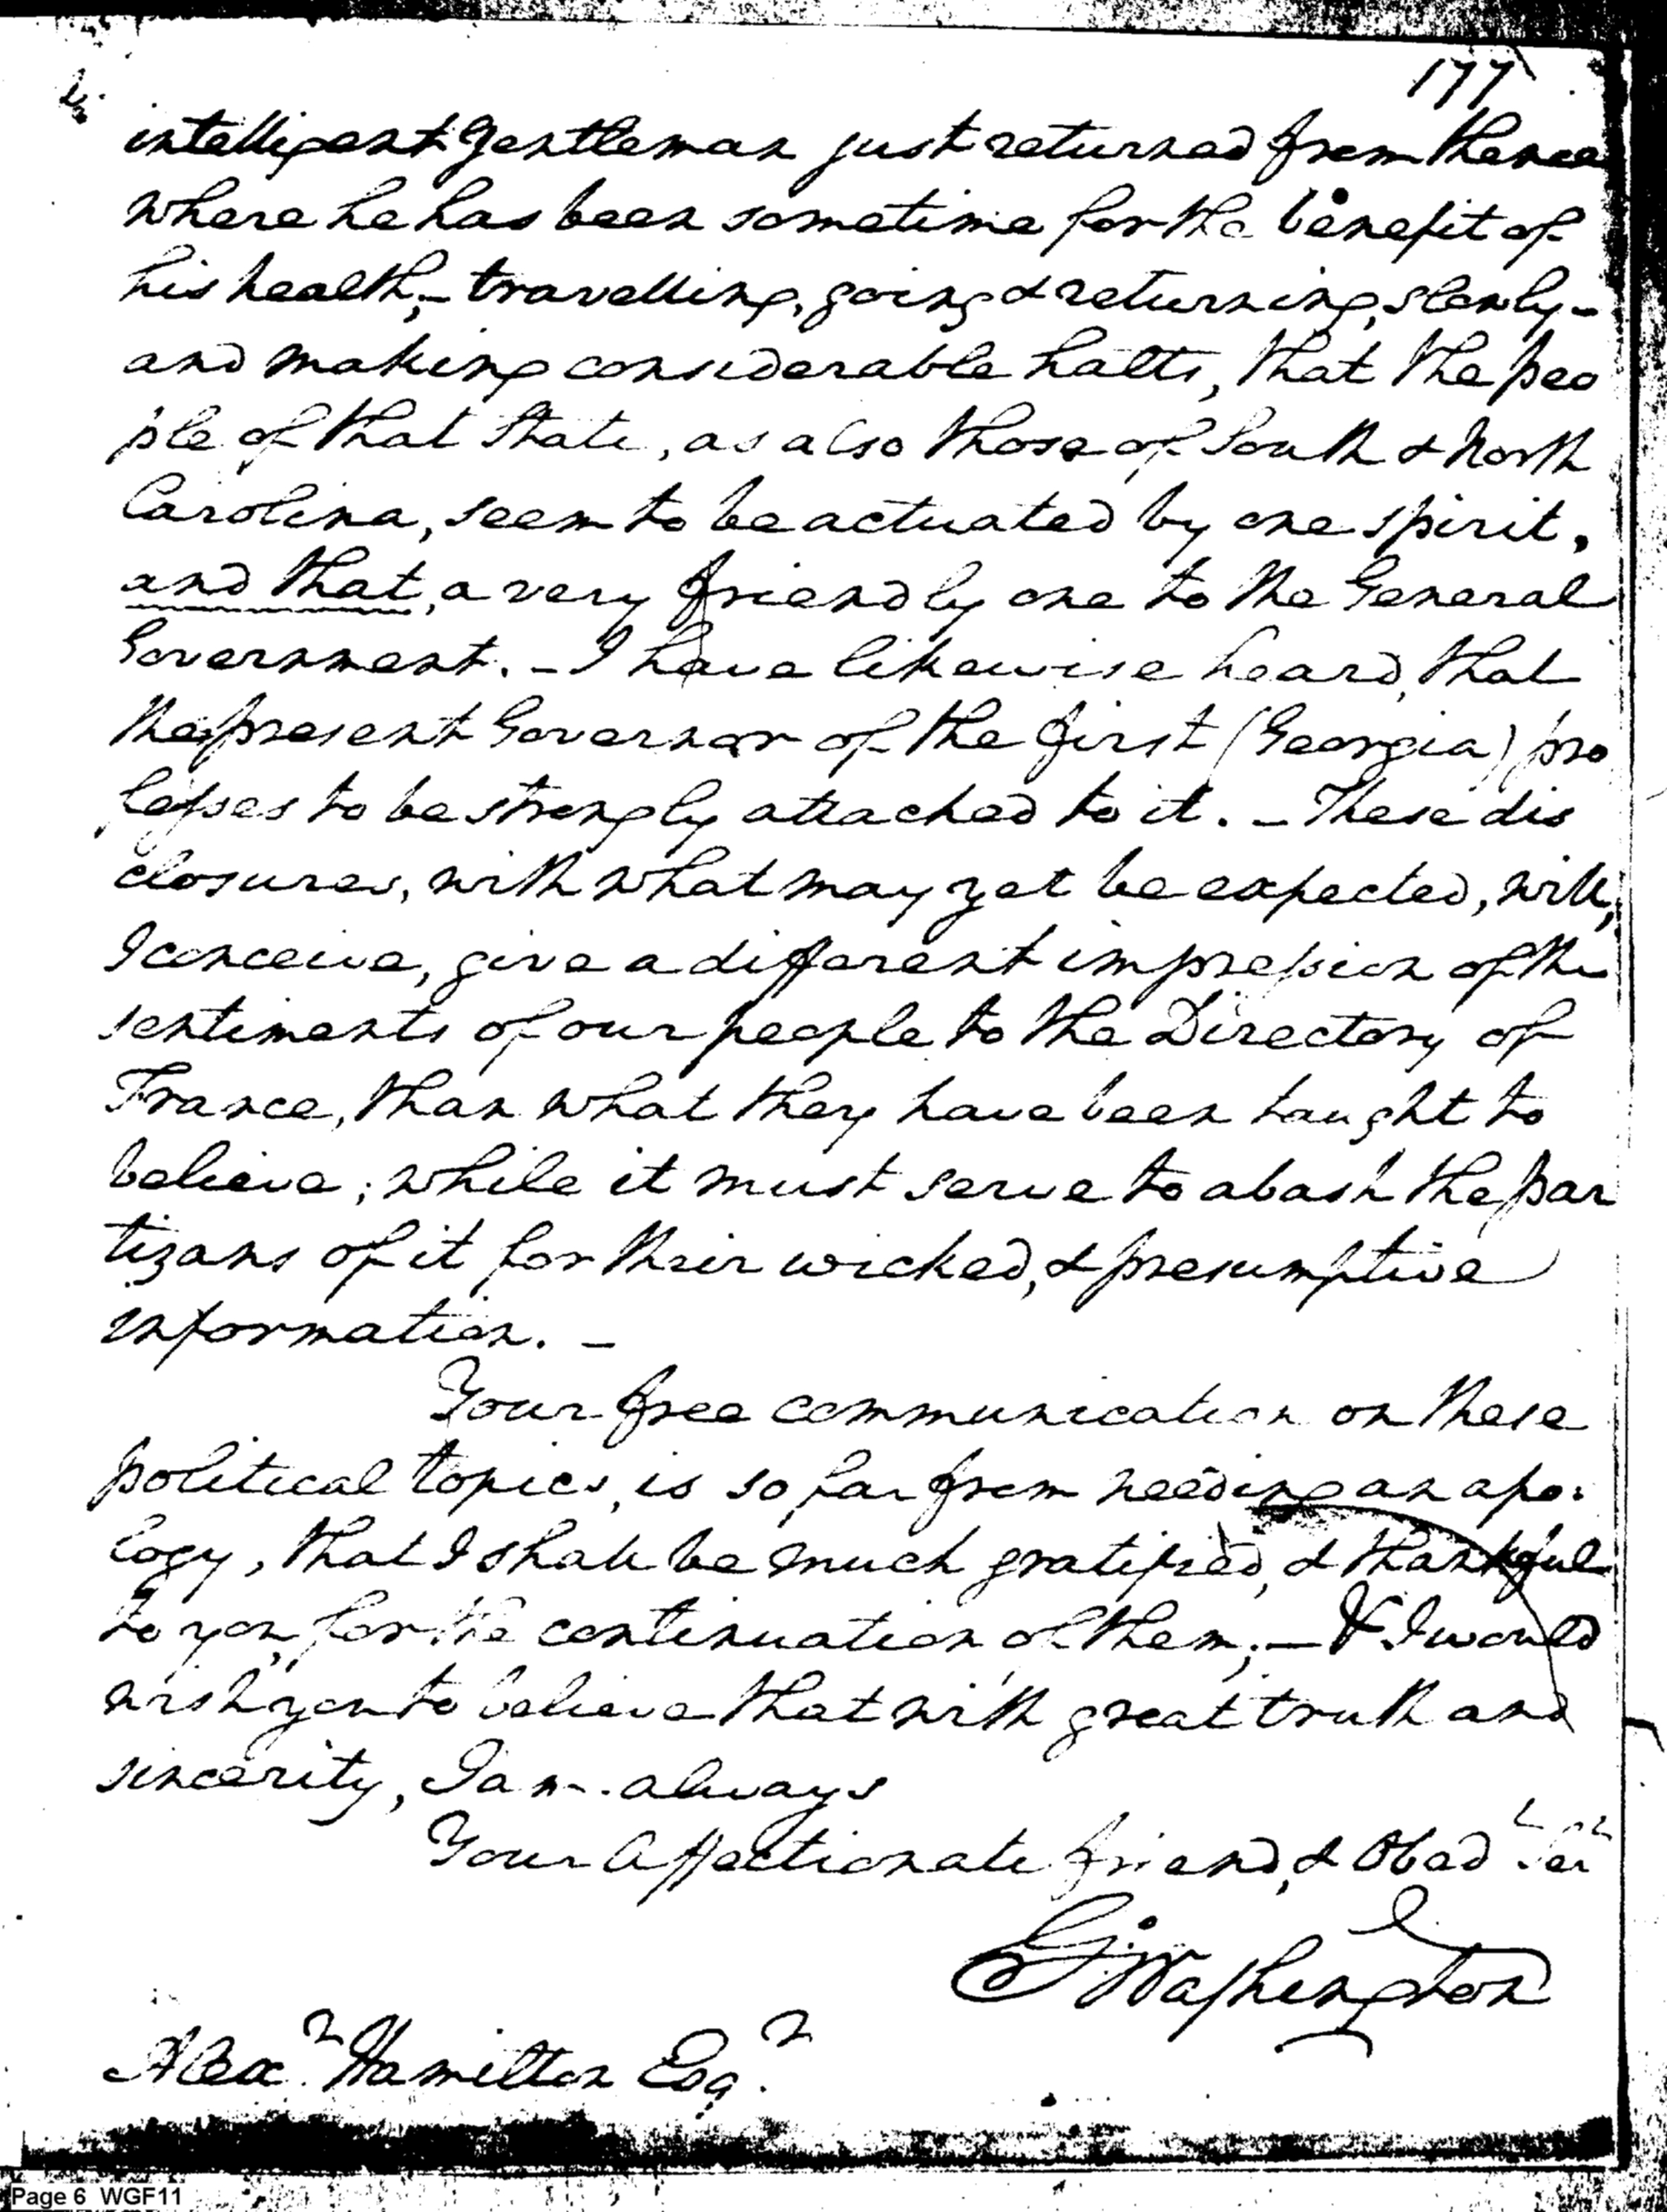 177
intelligent Gentleman just returned from thence
where he has been sometime for the benefit of
his health,–travelling, going & returning, slowly–
and making considerable halts, that the peo
ple of that State, as also those of South & North
Carolina, seem to be actuated by one spirit,
and that, a very friendly one to the General
Government. – I have likewise heard, that
the present Governor of the first (Georgia) pro
fesses to be strongly attached to it. – These dis
closures, with what may yet be expected, will,
I conceive, give a different impression of the
sentiments of our people to the Directory of
France, than what they have been taught to
believe; while it must serve to abash the par
tizans of it for their wicked, & presumptive
information. –
Your free communication on these
political topics, is so far from needing an apo-
logy, that I shall be much gratified, & thankful
to you, for the continuation of them; – & I would
wish you to believe that with great truth and
sincerity, I am always
Your Affectionate friend, & Obedᵗ Serᵗ
G: Washington
Alexʳ. Hamilton Esqʳ.
Page 6 WGF11